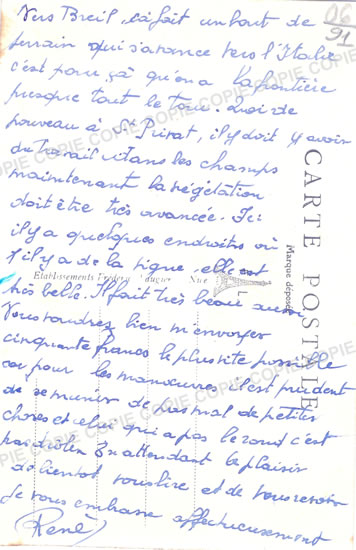 Vers Breil, ça fait un bout de
terrain qui s'avance vers l'Italie
c'est pour ça qu'on a la frontière
presque tout le tour. Quoi de
nouveau à St Privat, il y doit y avoir
du travail dans les champs
maintenant la végétation
doit être très avancée. Ici
il y a quelques endroits où
il y a de la vigne, elle est
très belle. Il fait très beau aussi
Vous voudrez bien m'envoyer
cinquante francs le plus vite possible
car pour les manœuvres il est prudent
de se munir de pas mal de petites
choses et celui qui a pas le rond c'est
pas drôle. En attendant le plaisir
de bientôt vous lire et de vous revoir
Je vous embrasse affectueusement
René
06
91
CARTE POSTALE
Marque déposée
Etablissements Nice
COPIE COPIE COPIE COPIE